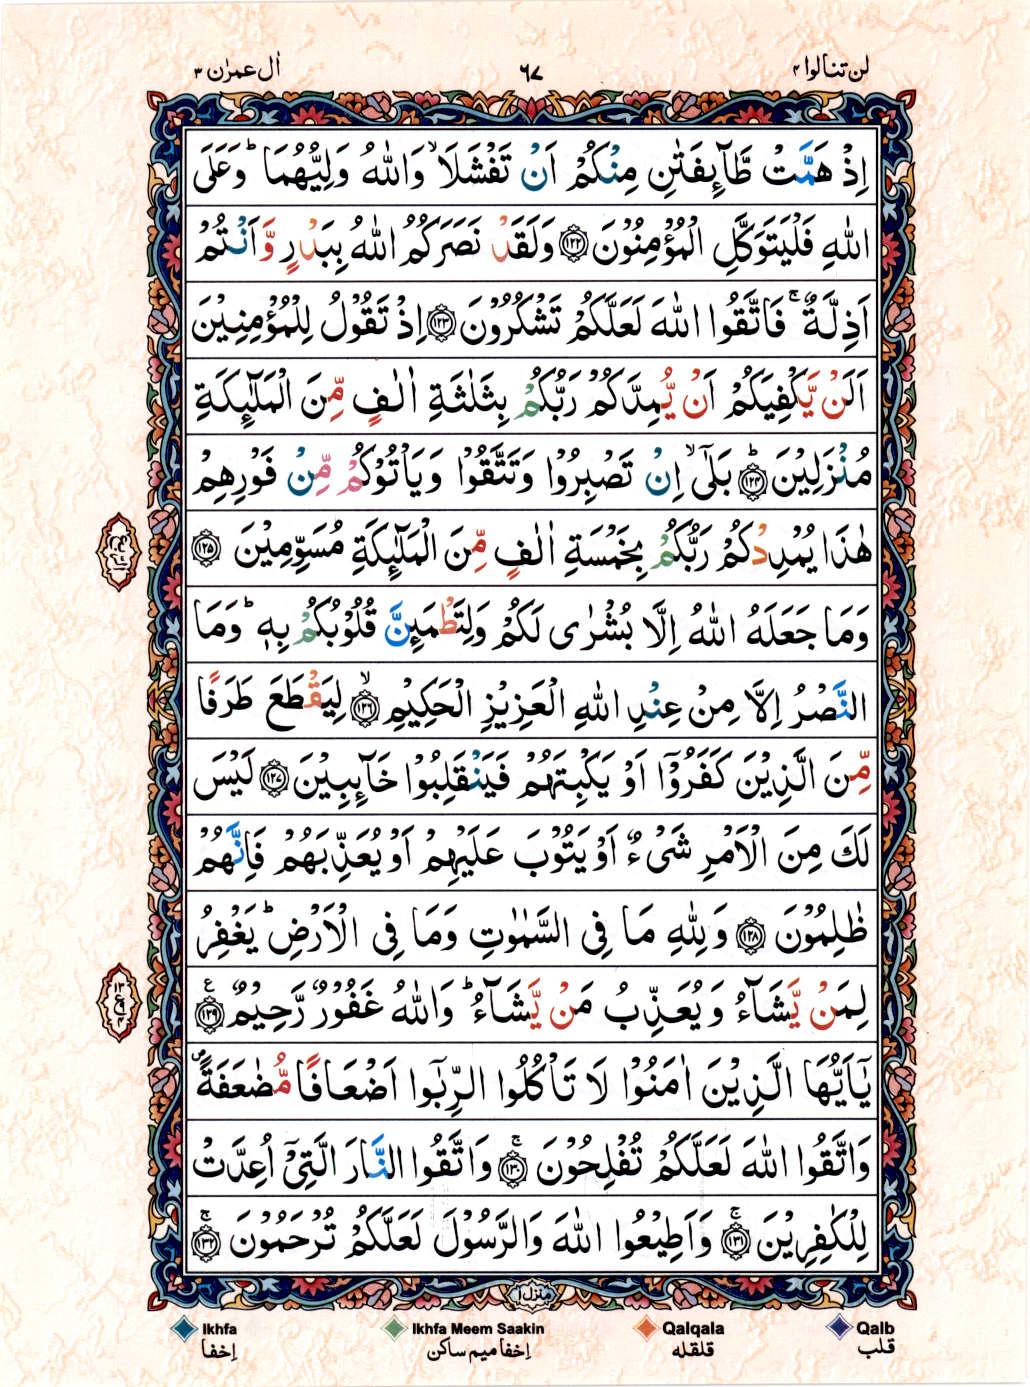 لن تنالوا ۴
٦٧
اٰل عمرٰن ۳
اِذْ هَمَّتْ طَّآىِٕفَتٰنِ مِنْكُمْ اَنْ تَفْشَلَا ۙ وَاللّٰهُ وَلِيُّهُمَا ؕ وَعَلَى
اللّٰهِ فَلْيَتَوَكَّلِ الْمُؤْمِنُوْنَ ﴿۱۲۲﴾ وَلَقَدْ نَصَرَكُمُ اللّٰهُ بِبَدْرٍ وَّاَنْتُمْ
اَذِلَّةٌ ۚ فَاتَّقُوا اللّٰهَ لَعَلَّكُمْ تَشْكُرُوْنَ ﴿۱۲۳﴾ اِذْ تَقُوْلُ لِلْمُؤْمِنِيْنَ
اَلَنْ يَّكْفِيَكُمْ اَنْ يُّمِدَّكُمْ رَبُّكُمْ بِثَلٰثَةِ اٰلٰفٍ مِّنَ الْمَلٰٓىِٕكَةِ
مُنْزَلِيْنَ ؕ ﴿۱۲۴﴾ بَلٰٓى ۙ اِنْ تَصْبِرُوْا وَتَتَّقُوْا وَيَاْتُوْكُمْ مِّنْ فَوْرِهِمْ
هٰذَا يُمْدِدْكُمْ رَبُّكُمْ بِخَمْسَةِ اٰلٰفٍ مِّنَ الْمَلٰٓىِٕكَةِ مُسَوِّمِيْنَ ﴿۱۲۵﴾
وَمَا جَعَلَهُ اللّٰهُ اِلَّا بُشْرٰى لَكُمْ وَلِتَطْمَىِٕنَّ قُلُوْبُكُمْ بِهٖ ؕ وَمَا
النَّصْرُ اِلَّا مِنْ عِنْدِ اللّٰهِ الْعَزِيْزِ الْحَكِيْمِ ۙ ﴿۱۲۶﴾ لِيَقْطَعَ طَرَفًا
مِّنَ الَّذِيْنَ كَفَرُوْٓا اَوْ يَكْبِتَهُمْ فَيَنْقَلِبُوْا خَآىِٕبِيْنَ ﴿۱۲۷﴾ لَيْسَ
لَكَ مِنَ الْاَمْرِ شَىْءٌ اَوْ يَتُوْبَ عَلَيْهِمْ اَوْ يُعَذِّبَهُمْ فَاِنَّهُمْ
ظٰلِمُوْنَ ﴿۱۲۸﴾ وَلِلّٰهِ مَا فِى السَّمٰوٰتِ وَمَا فِى الْاَرْضِ ؕ يَغْفِرُ
لِمَنْ يَّشَآءُ وَيُعَذِّبُ مَنْ يَّشَآءُ ؕ وَاللّٰهُ غَفُوْرٌ رَّحِيْمٌ ﴿۱۲۹﴾ ع
يٰٓاَيُّهَا الَّذِيْنَ اٰمَنُوْا لَا تَاْكُلُوا الرِّبٰٓوا اَضْعَافًا مُّضٰعَفَةً ۪
وَاتَّقُوا اللّٰهَ لَعَلَّكُمْ تُفْلِحُوْنَ ۚ ﴿۱۳۰﴾ وَاتَّقُوا النَّارَ الَّتِىْٓ اُعِدَّتْ
لِلْكٰفِرِيْنَ ۚ ﴿۱۳۱﴾ وَاَطِيْعُوا اللّٰهَ وَالرَّسُوْلَ لَعَلَّكُمْ تُرْحَمُوْنَ ۚ ﴿۱۳۲﴾
منزل ١
Ikhfa
اِخفا
Ikhfa Meem Saakin
اِخفا میم ساکن
Qalqala
قلقله
Qalb
قلب